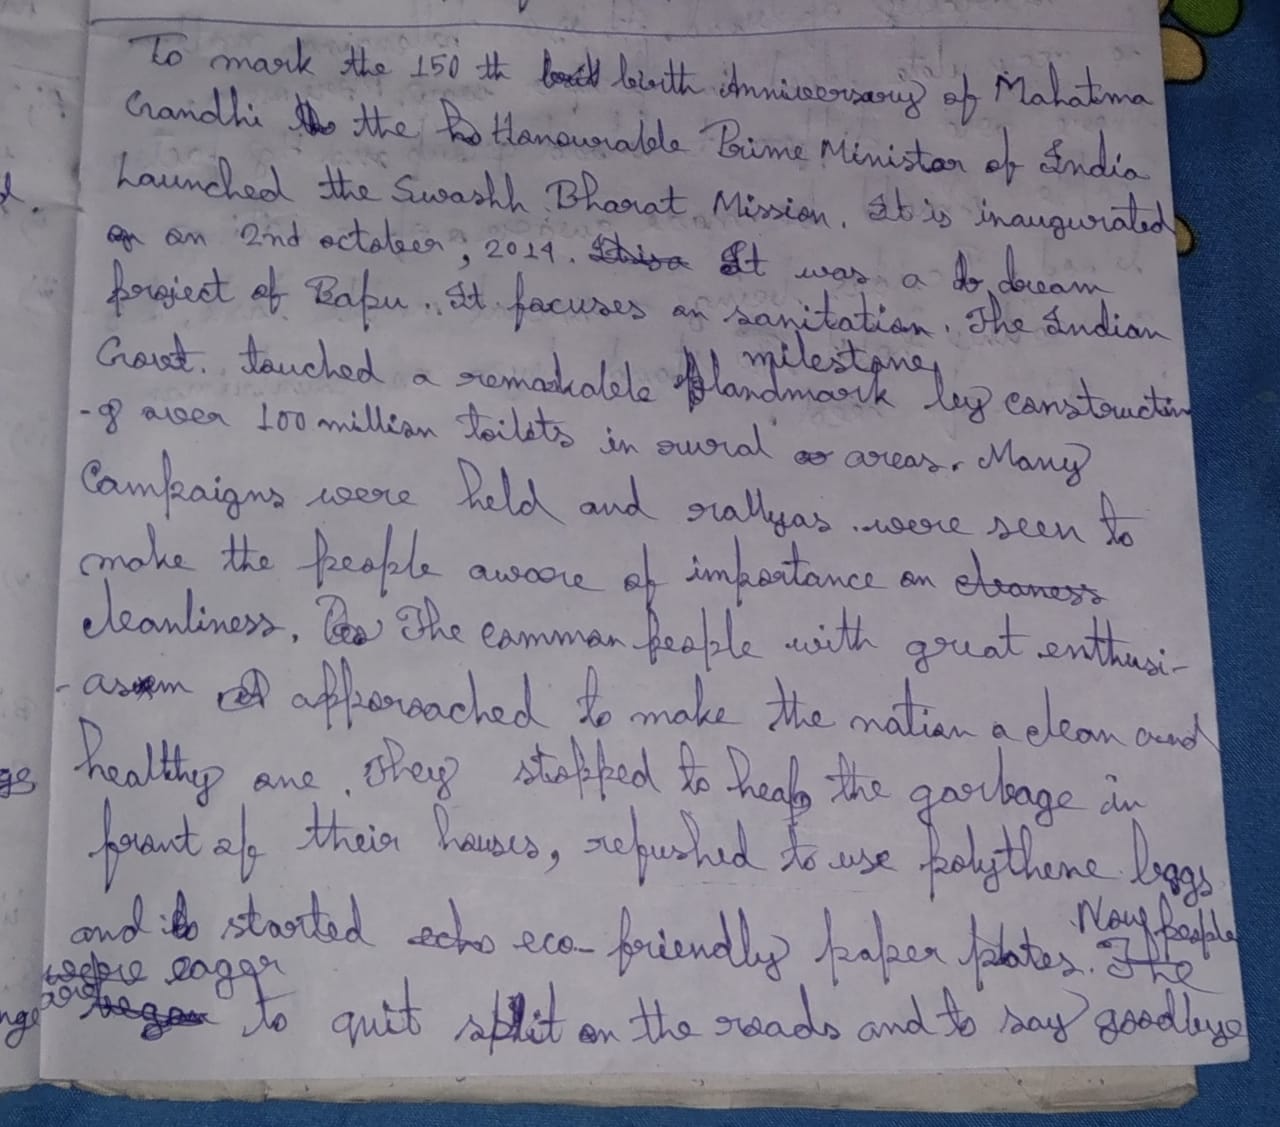 To mark the 150 th birth Anniversary of Mahatma
Gandhi the Honourable Prime Minister of India
Launched the Swashh Bharat Mission. It is inaugurated
on 2nd october, 2014. It was a dream
project of Bapu. It focuses on sanitation. The Indian
Govt. touched a remarkable landmark milestone by constructin
-g over 100 million toilets in rural areas. Many
Campaigns were held and rallyas were seen to
make the people aware of importance on
cleanliness. The common people with great enthusi-
-asm approached to make the nation a clean and
healthy one. They stopped to heap the garbage in
front of their houses, refushed to use polythene baggs
and started eco-friendly paper plates. Now people
are eager to quit spit on the roads and to say goodbye